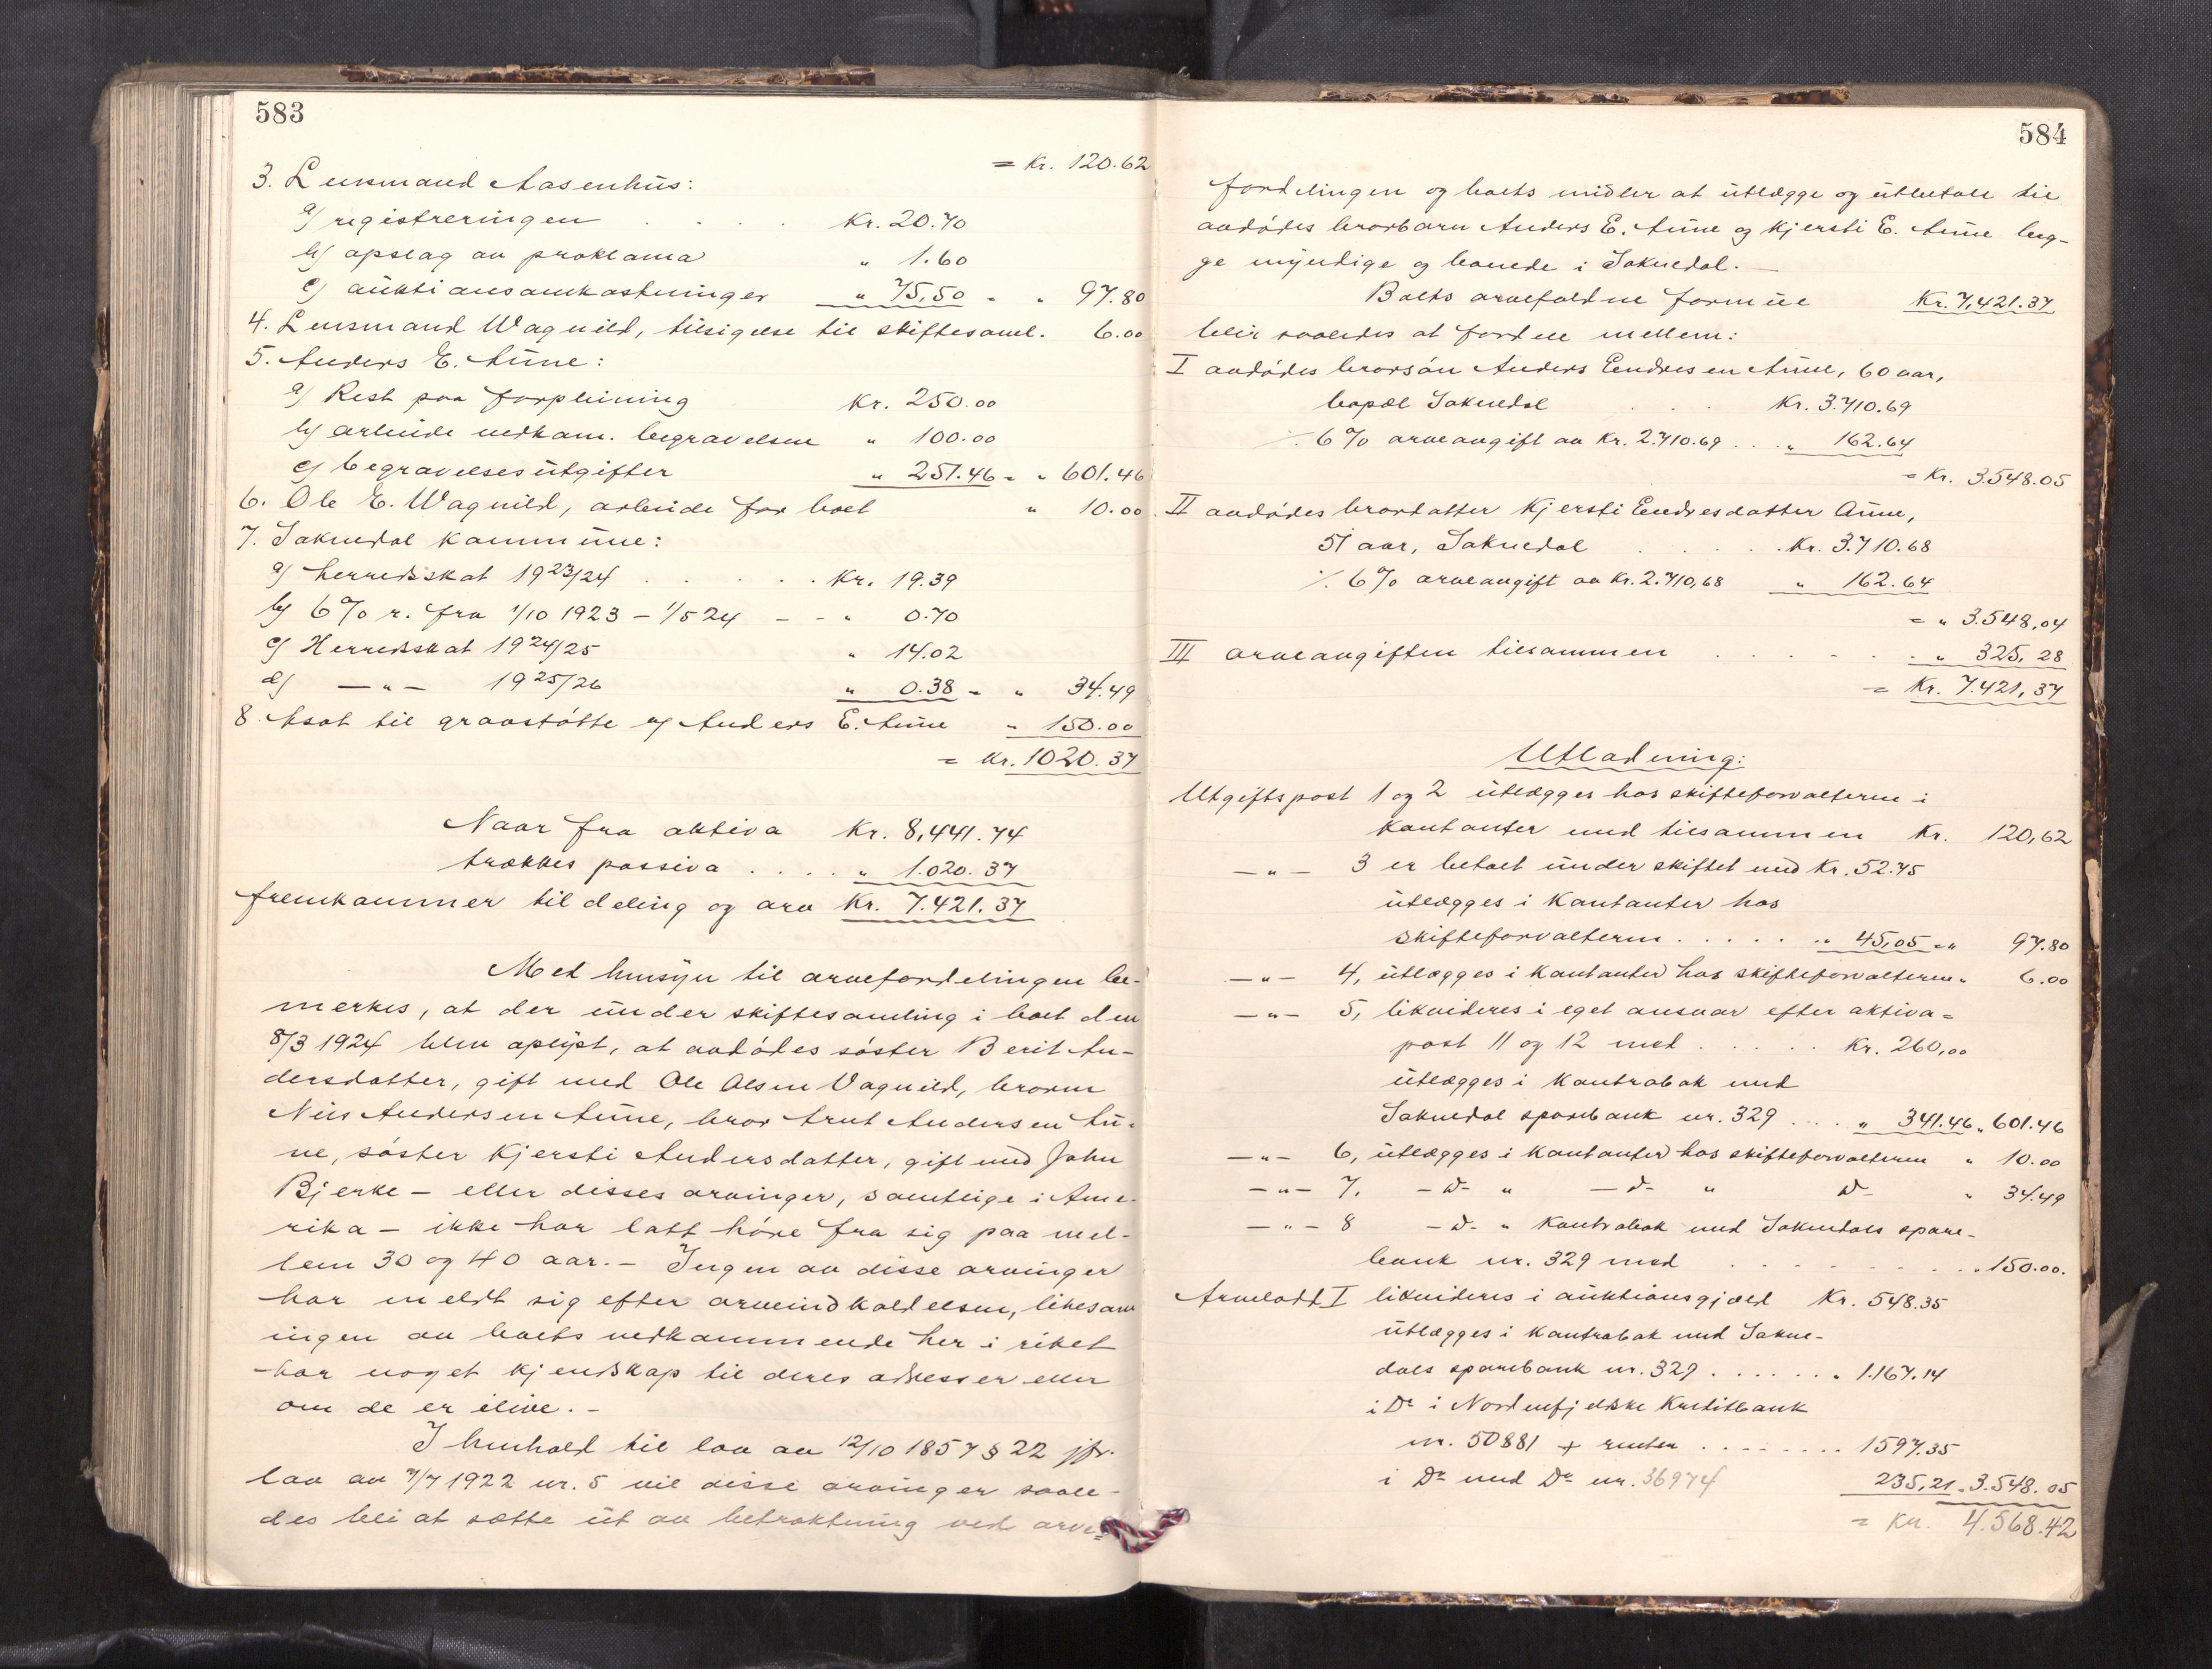 583
= Kr. 120.62
3. Lensmand Aasenhus:
a) registreringen . . . Kr. 20.70
b) opslag av proklama " 1.60
c) auktionsomkostninger " 75,50 = " 97.80
4. Lensmand Wagnild, tilsigelse til skiftesaml. 6.00
5. Anders E. Aune:
a) Rest paa forpleining Kr. 250.00
b) arbeide vedkom. begravelsen " 100.00
c) begravelsesutgifter " 251.46 = " 601.46
6. Ole E. Wagnild, arbeide for boet " 10.00
7. Soknedal kommune:
a) herredsskat 1923/24 . . . . . Kr. 19.39
b) 6% r. fra 1/10 1923 – 1/5 24 – - " 0.70
c) Herredsskat 1924/25 " 14.02
d) — " — 1925/26 " 0.38 = " 34.49
8. Avsat til gravstøtte v/ Anders E. Aune " 150.00
= Kr. 1020.37
Naar fra aktiva Kr. 8,441.74
trækkes passiva . . . . " 1.020.37
fremkommer til deling og arv Kr. 7.421.37
Med hensyn til arvefordelingen be-
merkes, at der under skiftesamling i boet den
8/3 1924 blev oplyst, at avdødes søster Berit An-
dersdatter, gift med Ole Olsen Vagnild, broren
Nils Andersen Aune, bror Arnt Andersen Au-
ne, søster Kjersti Andersdatter, gift med John
Bjerke – eller disses arvinger, samtlige i Ame-
rika – ikke har latt høre fra sig paa mel-
lem 30 og 40 aar. – Ingen av disse arvinger
har meldt sig efter arveindkaldelsen, likesom
ingen av boets vedkommende her i riket
har noget kjendskap til deres adresser eller
om de er ilive. –
I henhold til lov av 12/10 1857 § 22 jfr.
lov av 7/7 1922 nr. 5 vil disse arvinger saale-
des bli at sætte ut av betraktning ved arve-
584
fordelingen og boets midler at utlægge og utbetale til
avdødes brorbarn Anders E. Aune og Kjersti E. Aune beg-
ge myndige og boende i Soknedal. —
Boets arvefaldne formue Kr. 7,421.37
blir saaledes at fordele mellem:
I avdødes brorsøn Anders Eendresen Aune, 60 aar,
bopæl Soknedal . . . Kr. 3.710.69
÷ 6% arveavgift av Kr. 2.710.69 . . . " 162.64
= Kr. 3.548.05
II avdødes brordatter Kjersti Eendresdatter Aune,
51 aar, Soknedal . . . . Kr. 3.710.68
÷ 6% arveavgift av Kr. 2.710,68 " 162.64
= " 3.548,04
III arveavgiften tilsammen . . . . . . " 325,28
= Kr. 7.421,37
Utlodning:
Utgiftspost 1 og 2 utlægges hos skifteforvalteren i
kontanter med tilsammen Kr. 120,62
— " — 3 er betalt under skiftet med Kr. 52.75
utlægges i kontanter hos
skifteforvalteren . . . . . " 45,05 = " 97.80
— " — 4, utlægges i kontanter hos skifteforvalteren " 6.00
— " — 5, likvideres i eget ansvar efter aktiva-
post 11 og 12 med . . . . . Kr. 260,00
utlægges i kontrabok med
Soknedal sparebank nr. 329 . . . " 341.46 " 601.46
— " — 6, utlægges i kontanter hos skifteforvalteren " 10.00
— " — 7. – d- " – d- " d- " 34.49
— " — 8 – d- " kontrabok med Soknedals spare-
bank nr. 329 med . . . . . . . . " 150.00.
Arvelodd I likvideres i auktionsgjæld Kr. 548.35
utlægges i kontrabok med Sokne-
dals sparebank nr. 329 . . . . . . " 1.167.14
i Do i Nordenfjeldske Kreditbank
nr. 50881 + renter . . . . . . . . 1597.35
i Do med Do nr. 36974 235,21 " 3.548.05
= Kr. 4.568.42